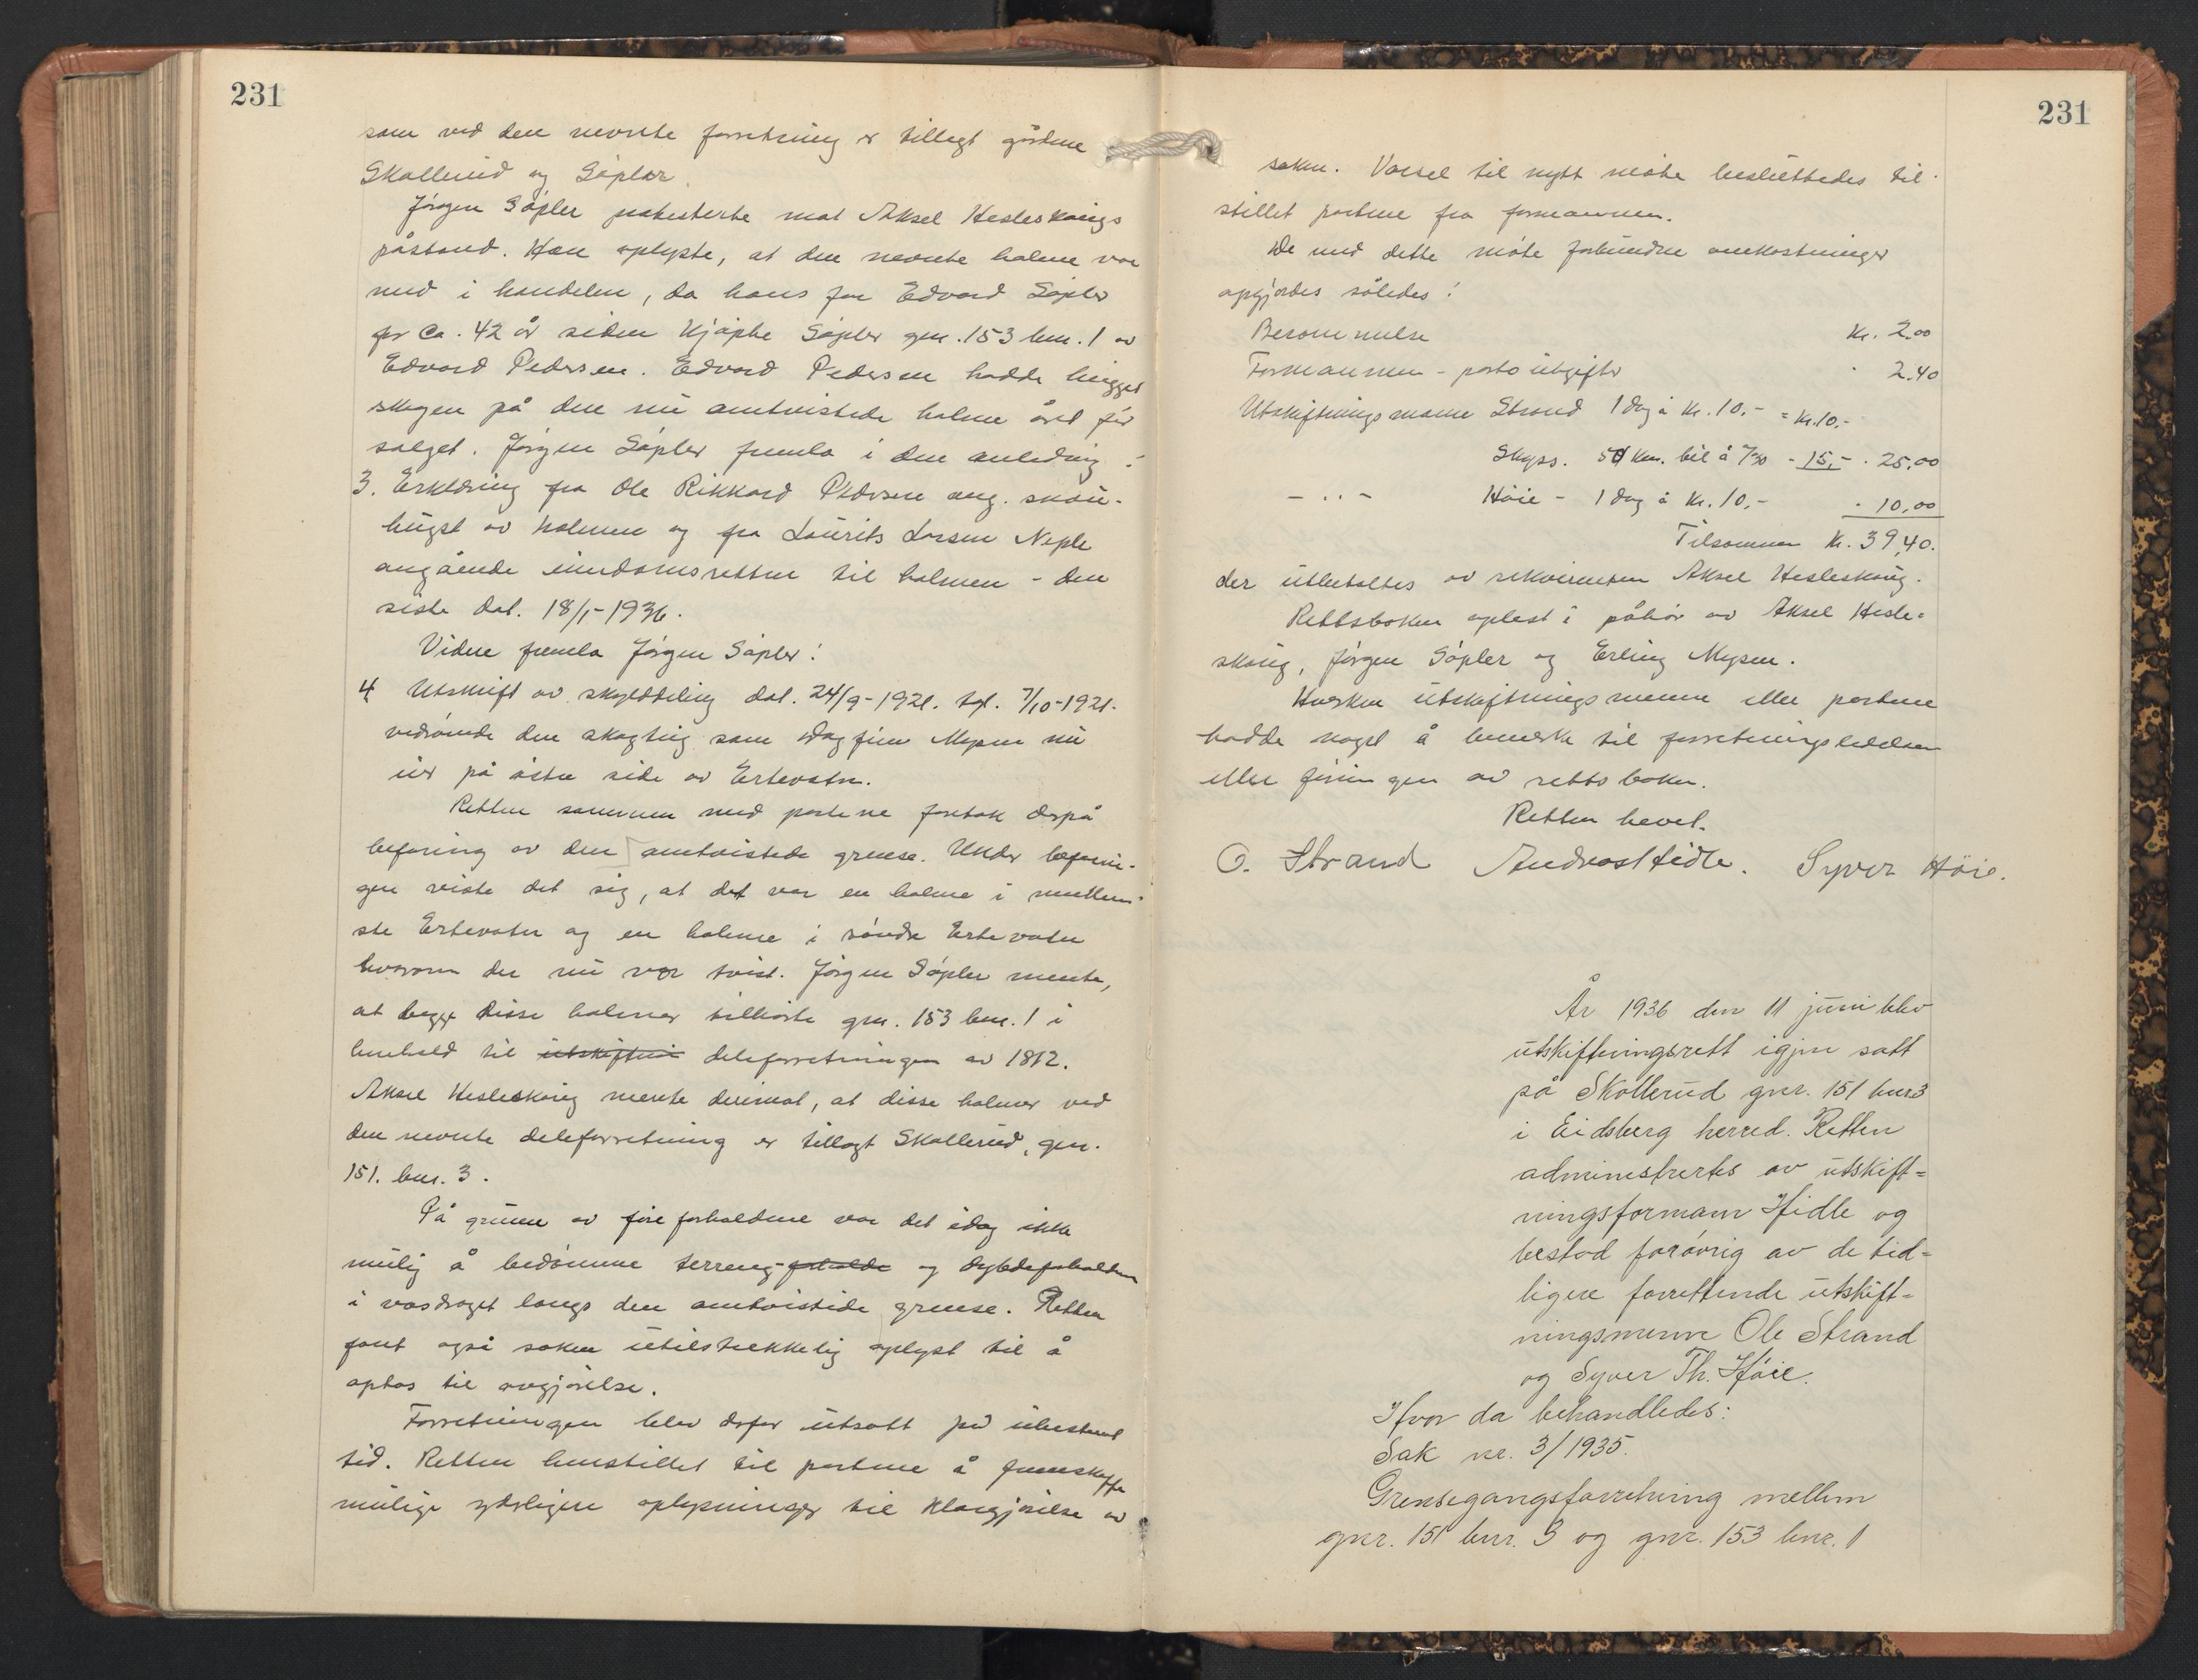 231
som ved den nevnte forretning er tillegt gårdene
Skallerud og Sópler.
Jórgen Sópler protesterte mot Aksel Hesleskaugs
påstand. Han oplyste, at den nevnte holme var
med i handelen, da hans far Edvard Sópler
for ca. 42 år siden kjópte Sópler gnr. 153 bnr. 1 av
Edvard Pedersen. Edvard Pedersen hadde hugget
skogen på den nu omtvistede holme året fór
salget. Jórgen Sópler fremla i den anledning:
3. Erklæring fra Ole Rikkard Pedersen ang. skau-
hugst av holmen og fra Laurits Larsen Neple
angående eiendomsretten til holmen - den
siste dat. 18/1-1936.
Videre fremla Jórgen Sópler:
4 Utskrift av skylddeling dat. 24/9-1921. tgl. 7/10-1921.
vedrórende den skogteig som Dagfinn Mysen nu
eier på óstre side av Ertevatn.
Retten sammen med partene foretok derpå
befaring av den omtvistede grense. Under befarin-
gen viste det sig, at det var en holme i mellem-
ste Ertevatn og en holme i sóndre Ertevatn
hvorom der nu var tvist. Jórgen Sópler mente,
at begge disse holmer tilhórte gnr. 153 bnr. 1 i
henhold til utskiftni deleforretningen av 1812.
Aksel Hesleskaug mente derimot, at disse holmer ved
den nevnte deleforretning er tillagt Skallerud, gnr.
151. bnr. 3.
På grunn av fóreforholdene var det idag ikke
mulig å bedómme terreng- forholde og dybdeforholdene
i vasdraget langs den omtvistede grense. Retten
fant også saken utilstrekkelig oplyst til å
optas til avgjórelse.
Forretningen blev derfor utsatt på ubestemt
tid. Retten henstillet til partene å fremskaffe
mulige yderligere oplysninger til klargjórelse av
231
saken. Varsel til nytt móte besluttedes til-
stillet partene fra formannen.
De med dette móte forbundne omkostninger
opgjordes således:
Berammelse Kr. 2.00
Formannen - portoutgifter - 2.40
Utskiftningsmann Strand 1 dag à Kr. 10.- = Kr. 10.-
Skyss. 50 km. bil à /30 - 15,- - 25,00
- .. - Hóie - 1 dag à Kr. 10.- - 10,00
Tilsammen Kr. 39,40.
der utbetaltes av rekvirenten Aksel Hesleskaug.
Rettsboken oplest i påhór av Aksel Hesle=
skaug, Jórgen Sópler og Erling Mysen.
Hverken utskiftningsmenn eller partene
hadde noget å bemerke til forretningsledelsen
eller fóringen av rettsboken.
Retten hevet.
O. Strand Andreas Hidle. Syver Hóie.
År 1936 den 11 juni blev
utskiftningsrett igjen satt
på Skallerud gnr. 151 bnr 3
i Eidsberg herred. Retten
administrertes av utskift=
ningsformann Hidle og
bestod foróvrig av de tid=
ligere forrettende utskift=
ningsmenn Ole Strand
og Syver Th. Hóie.
Hvor da behandledes:
Sak nr. 3/1935.
Grensegangsforretning mellem
gnr. 151 bnr. 3 og gnr. 153 bnr. 1